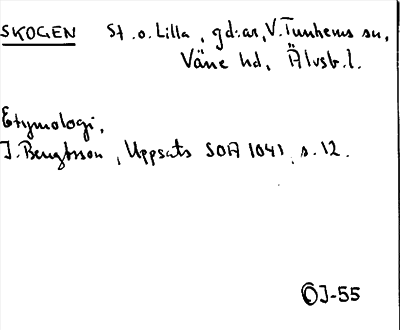 SKOGEN St. o. Lilla, gd:ar, V. Tunhems sn,
Väne hd, Älvsb. l.
Etymologi,
J. Bengtsson, Uppsats SOA 1041, s. 12.
OJ-55